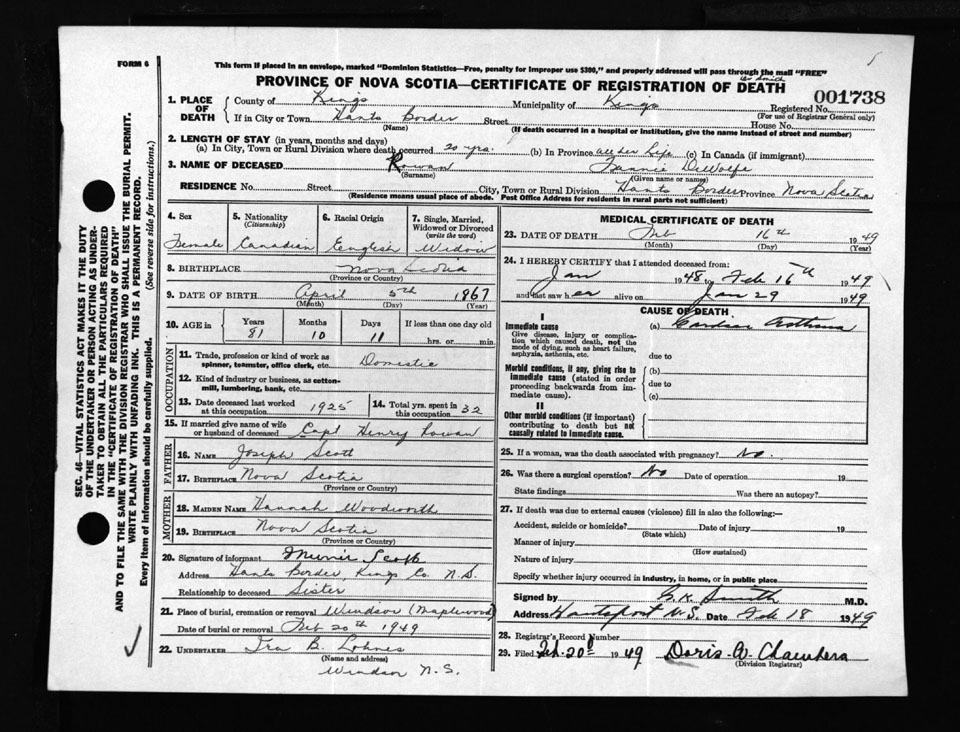 FORM 6
This form if placed in an envelope, marked "Dominion Statistics—Free, penalty for improper use $300," and properly addressed will pass through the mail "FREE"
PROVINCE OF NOVA SCOTIA—CERTIFICATE OF REGISTRATION OF DEATH
001738
1. PLACE OF DEATH
County of Kings Municipality of Kings Registered No.
(For use of Registrar General only)
If in City or Town Hants Border Street House No.
(Name) (If death occurred in a hospital or institution, give the name instead of street and number)
2. LENGTH OF STAY (in years, months and days)
(a) In City, Town or Rural Division where death occurred 20 yrs. (b) In Province all her life (c) In Canada (if immigrant)
3. NAME OF DECEASED Rowan Fannie DeWolfe
(Surname) (Given name or names)
RESIDENCE No. Street City, Town or Rural Division Hants Border Province Nova Scotia
(Residence means usual place of abode. Post Office Address for residents in rural parts not sufficient)
4. Sex
Female
5. Nationality
(Citizenship)
Canadian
6. Racial Origin
English
7. Single, Married, Widowed or Divorced
(write the word)
Widow
8. BIRTHPLACE Nova Scotia
(Province or Country)
9. DATE OF BIRTH April 5th 1867
(Month) (Day) (Year)
10. AGE in Years Months Days If less than one day old
81 10 11 hrs. or min.
OCCUPATION
11. Trade, profession or kind of work as spinner, teamster, office clerk, etc. Domestic
12. Kind of industry or business, as cotton-mill, lumbering, bank, etc.
13. Date deceased last worked at this occupation 1925
14. Total yrs. spent in 32
15. If married give name of wife or husband of deceased Capt Henry Rowan
FATHER
16. NAME Joseph Scott
17. BIRTHPLACE Nova Scotia
(Province or Country)
MOTHER
18. MAIDEN NAME Hannah Woodworth
19. BIRTHPLACE Nova Scotia
(Province or Country)
20. Signature of informant Scott
Address Hants Border, Kings Co. N.S.
Relationship to deceased Sister
21. Place of burial, cremation or removal Windsor (Maplewood)
Date of burial or removal Feb 20th 1949
22. UNDERTAKER Ira B. Lohnes
(Name and address)
Windsor N.S.
MEDICAL CERTIFICATE OF DEATH
23. DATE OF DEATH Feb 16th 1949
(Month) (Day) (Year)
24. I HEREBY CERTIFY that I attended deceased from:
Jan 1948 to Feb 16th 1949
and last saw her alive on Jan 29 1949
CAUSE OF DEATH
I
Immediate cause
Give disease, injury or complication which caused death, not the mode of dying, such as heart failure, asphyxia, asthenia, etc.
(a) Cardiac Asthma
due to
Morbid conditions, if any, giving rise to immediate cause (stated in order proceeding backwards from immediate cause).
(b)
due to
(c)
II
Other morbid conditions (if important) contributing to death but not causally related to immediate cause.
25. If a woman, was the death associated with pregnancy? No.
26. Was there a surgical operation? No Date of operation 19
State findings Was there an autopsy?
27. If death was due to external causes (violence) fill in also the following:—
Accident, suicide or homicide? Date of injury 19
(State which)
Manner of injury
(How sustained)
Nature of injury
Specify whether injury occurred in industry, in home, or in public place
Signed by Smith M.D.
Address Hantsport N.S. Date Feb 18 1949
28. Registrar's Record Number
29. Filed Feb. 20 1949 Doris A. Chambers
(Division Registrar)
SEC. 46—VITAL STATISTICS ACT MAKES IT THE DUTY
OF THE UNDERTAKER OR PERSON ACTING AS UNDER-
TAKER TO OBTAIN ALL THE PARTICULARS REQUIRED
IN THE "CERTIFICATE OF REGISTRATION OF DEATH"
AND TO FILE THE SAME WITH THE DIVISION REGISTRAR WHO SHALL ISSUE THE BURIAL PERMIT.
WRITE PLAINLY WITH UNFADING INK. THIS IS A PERMANENT RECORD.
Every item of information should be carefully supplied. (See reverse side for instructions.)